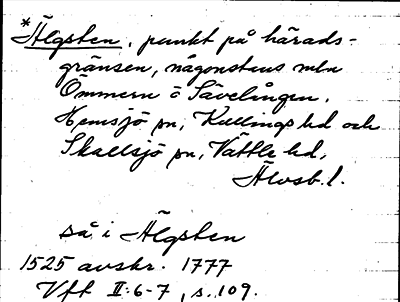 *Älgsten, punkt på härads-
gränsen, någonstans mln
Ömmern o Sävelången.
Hemsjö sn, Kullings hd och
Skallsjö sn, Vättle hd,
Älvsb. l.
så i Älgsten
1525 avskr. 1777
Vft II:6-7, s. 109.